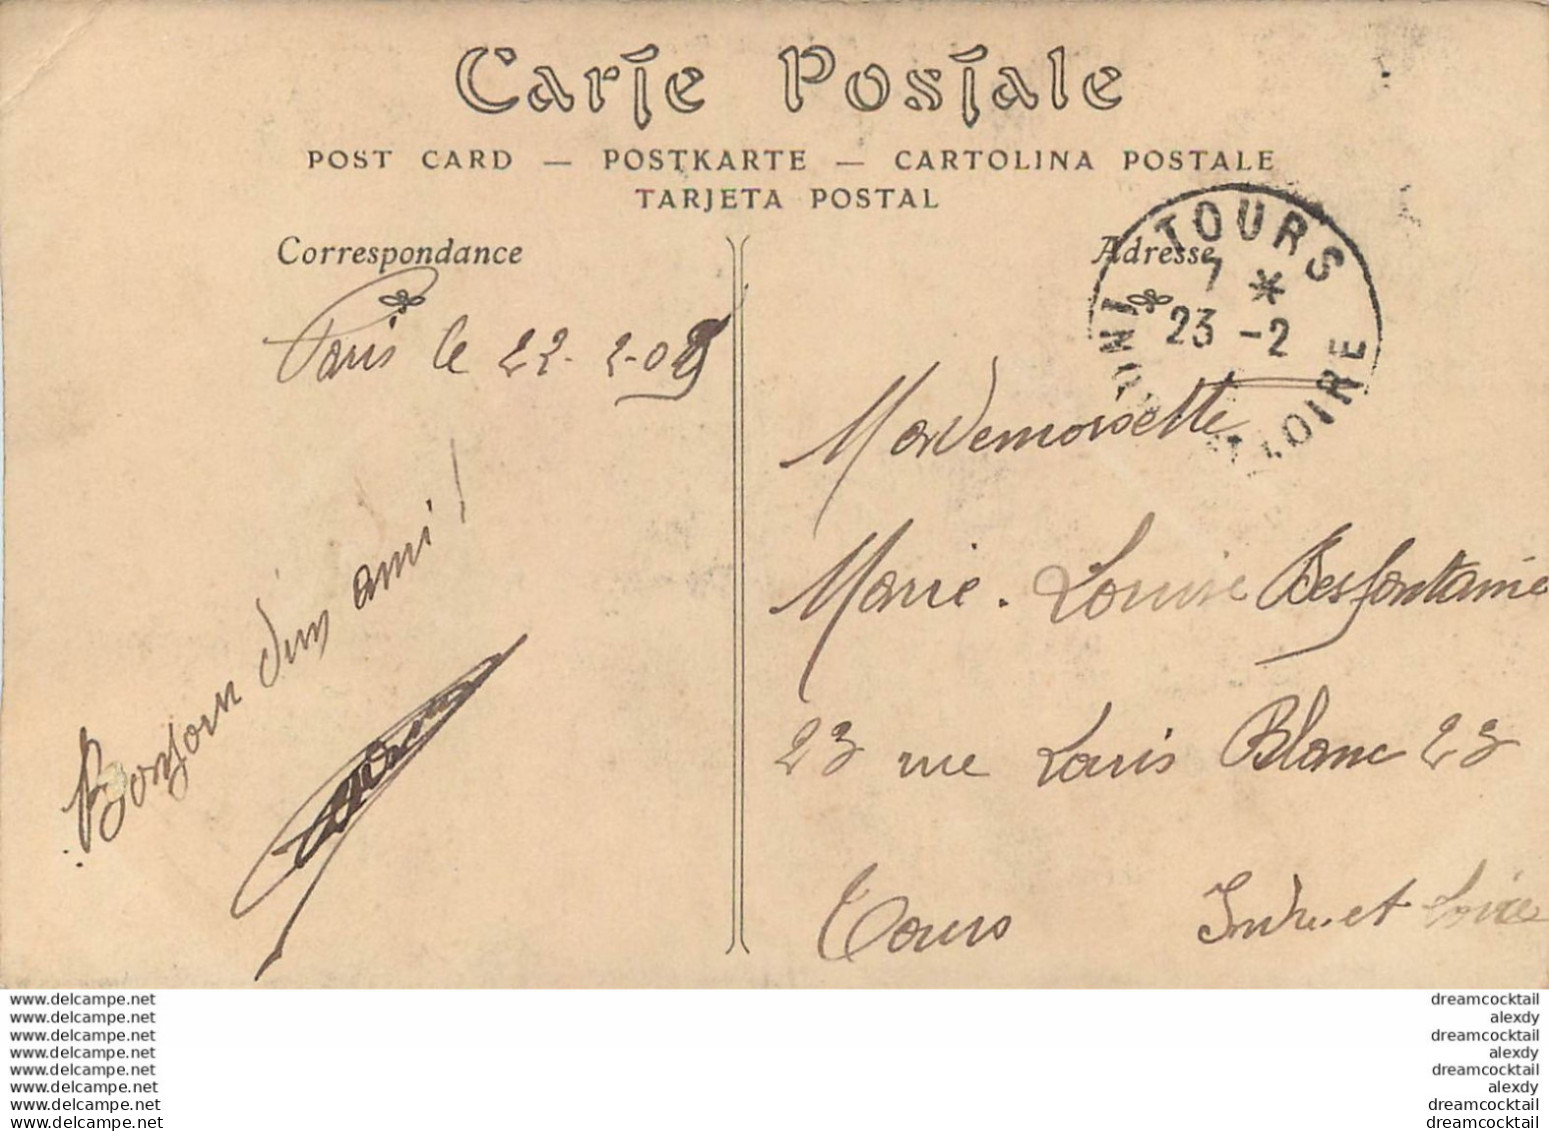 Carte Postale
POST CARD — POSTKARTE — CARTOLINA POSTALE
TARJETA POSTAL
Correspondance
Adresse
TOURS
7 *
23 -2
LOIRE
Paris le 22-2-09
Bonjour d'un ami !
Mademoiselle
Marie-Louise Desfontaine
23 rue Louis Blanc 23
Tours Indre-et Loire
www.delcampe.net
www.delcampe.net
www.delcampe.net
www.delcampe.net
www.delcampe.net
www.delcampe.net
www.delcampe.net
www.delcampe.net
dreamcocktail
alexdy
dreamcocktail
alexdy
dreamcocktail
alexdy
dreamcocktail
dreamcocktail